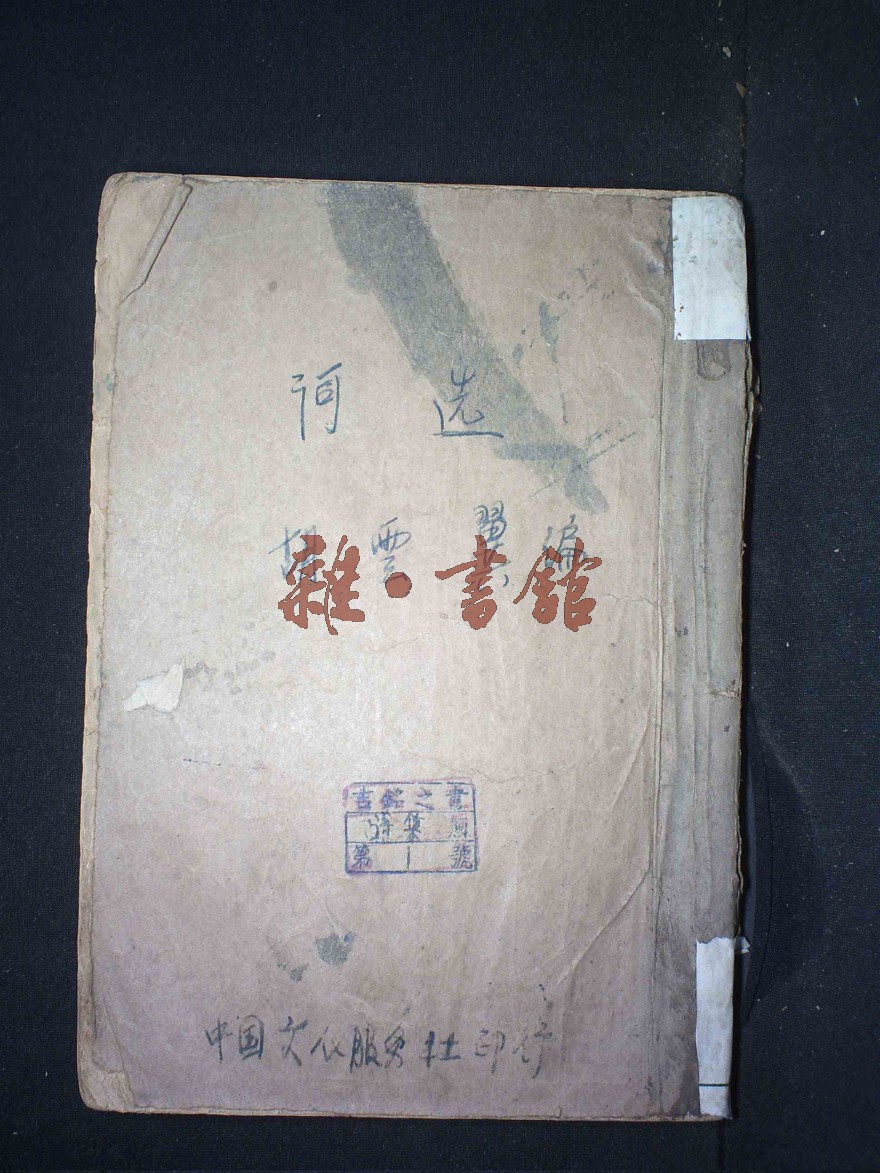 词选
胡雲翼编
雜·書館
吉銘之書
詩集類
第1號
中国文化服务社印行